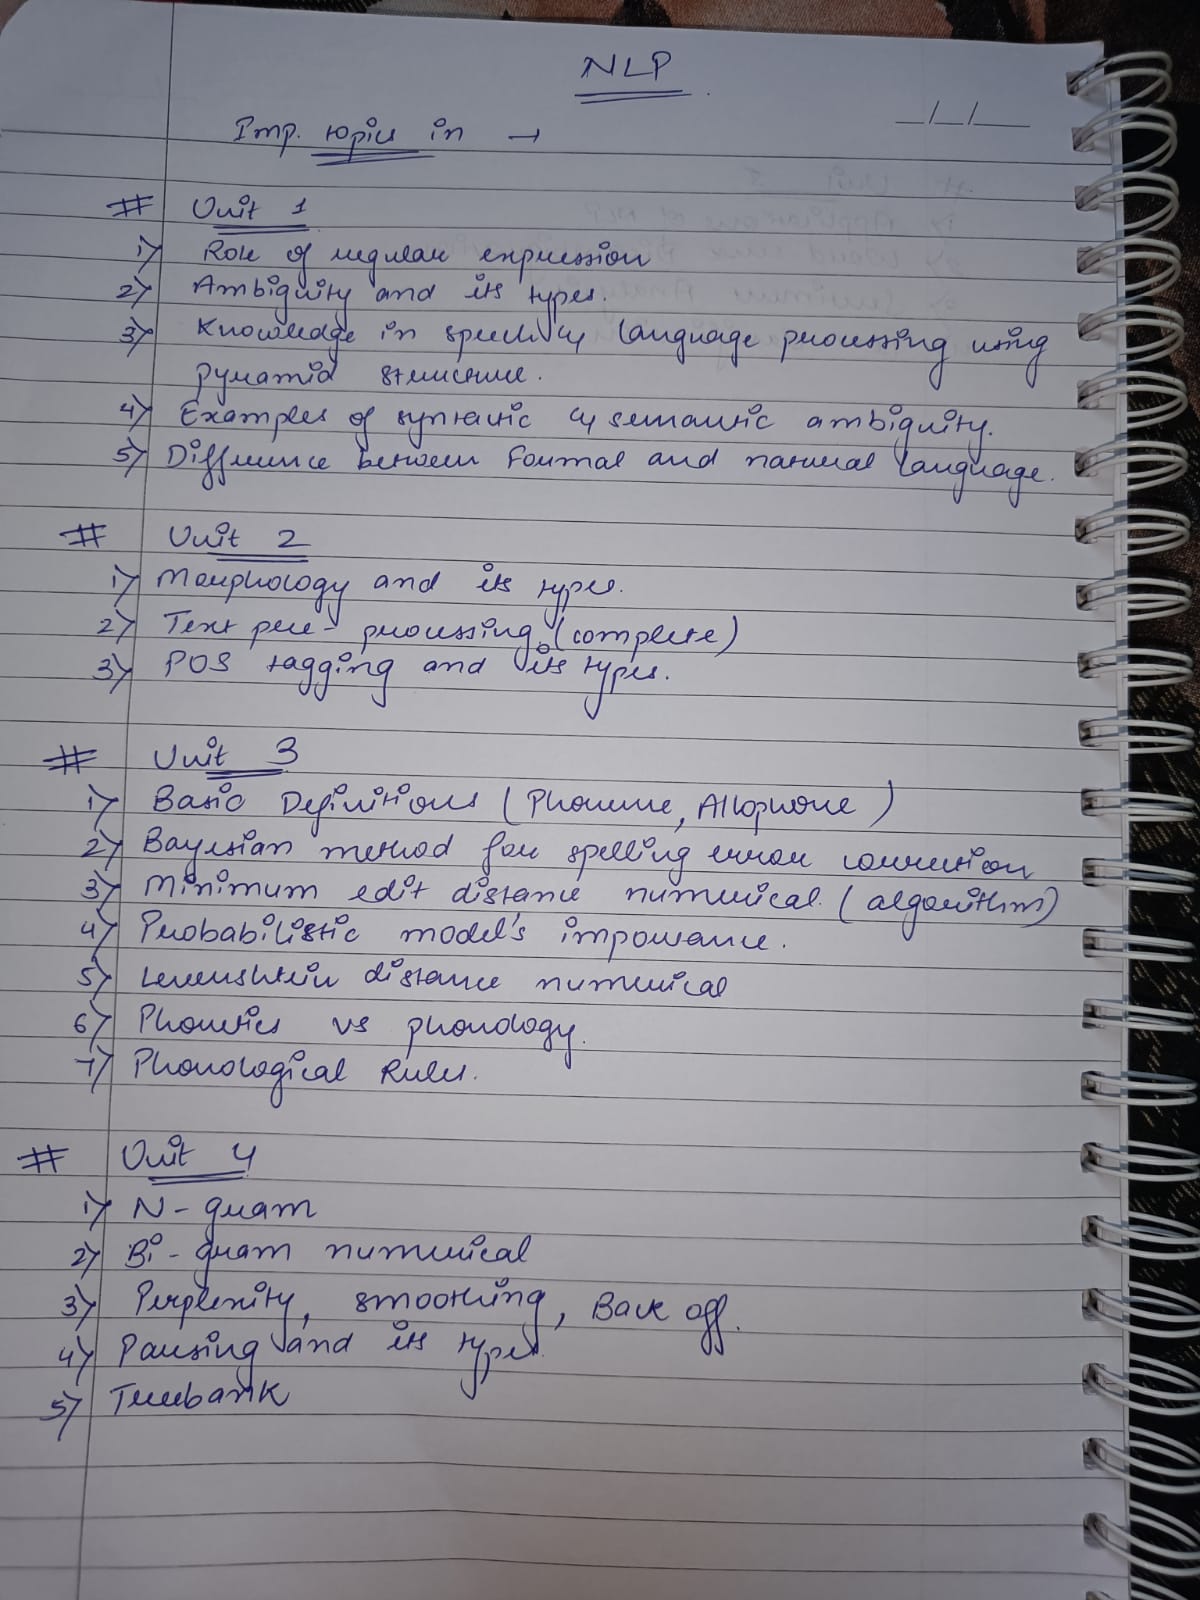 NLP
_/_/__
Imp. topics in →
# Unit 1
1) Role of regular expression
2) Ambiguity and its types.
3) Knowledge in speech & language processing using
pyramid structure.
4) Examples of syntactic & semantic ambiguity.
5) Difference between formal and natural language.
# Unit 2
1) Morphology and its types.
2) Text pre-processing (complete)
3) POS tagging and its types.
# Unit 3
1) Basic Definitions (Phoneme, Allophone)
2) Bayesian method for spelling error correction
3) Minimum edit distance numerical. (algorithm)
4) Probabilistic model's importance.
5) Levenshtein distance numerical
6) Phonetics vs phonology.
7) Phonological Rules.
# Unit 4
1) N-gram
2) Bi-gram numerical
3) Perplexity, smoothing, Back off.
4) Parsing and its types.
5) Treebank